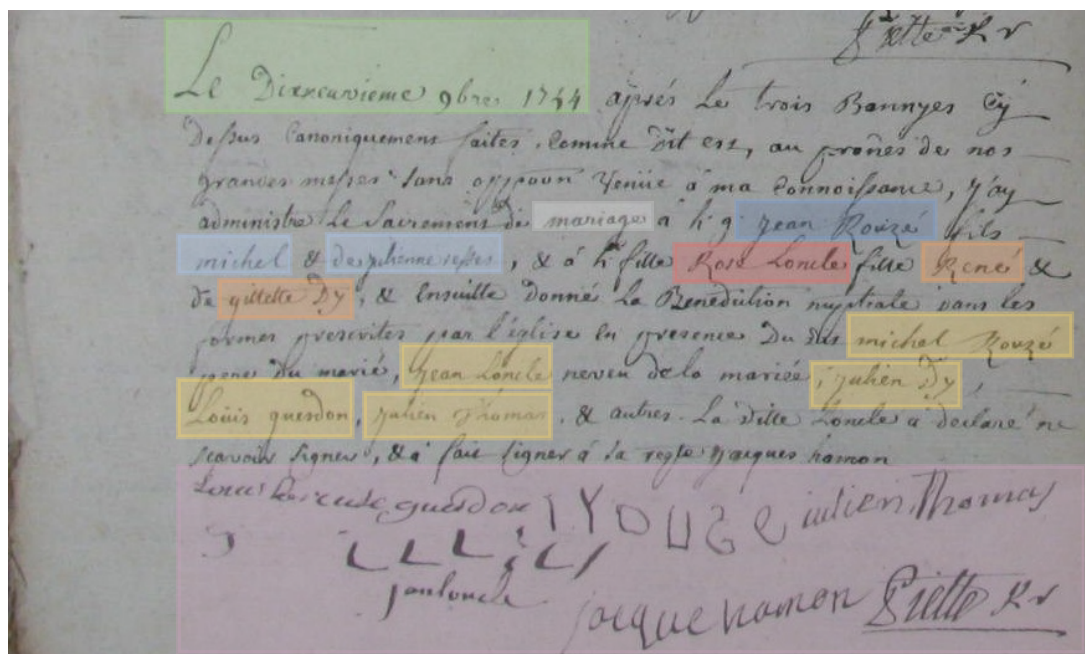 Piette Rr
Le Dixneuvieme 9bre 1744 après Les trois Bannyes Cy
Dessus Canoniquement faites, Comme Dit est, au prônes de nos
grandes messes sans oppoōn Venüe à ma Connoissance, J'ay
administré Le Sacrement de mariage à h g Jean Rouzé fils
michel & de &à h fille Rose Loncle fille René &
de gillette Dy, & Ensuitte Donné La Benediction nuptiale dans les
formes prescrites par l'église en presence Du dit michel Rouzé
pere Du marié, Jean Loncle neveu de la mariée, Julien Dy,
Loüis guesdon, Julien Thomas, & autres. La ditte Loncle a declaré ne
scavoir signer, & a fait signer à sa reqte Jacques hamon
Louis guesdon julien Thomas
jan loncle
jacque hamon Piette Rr